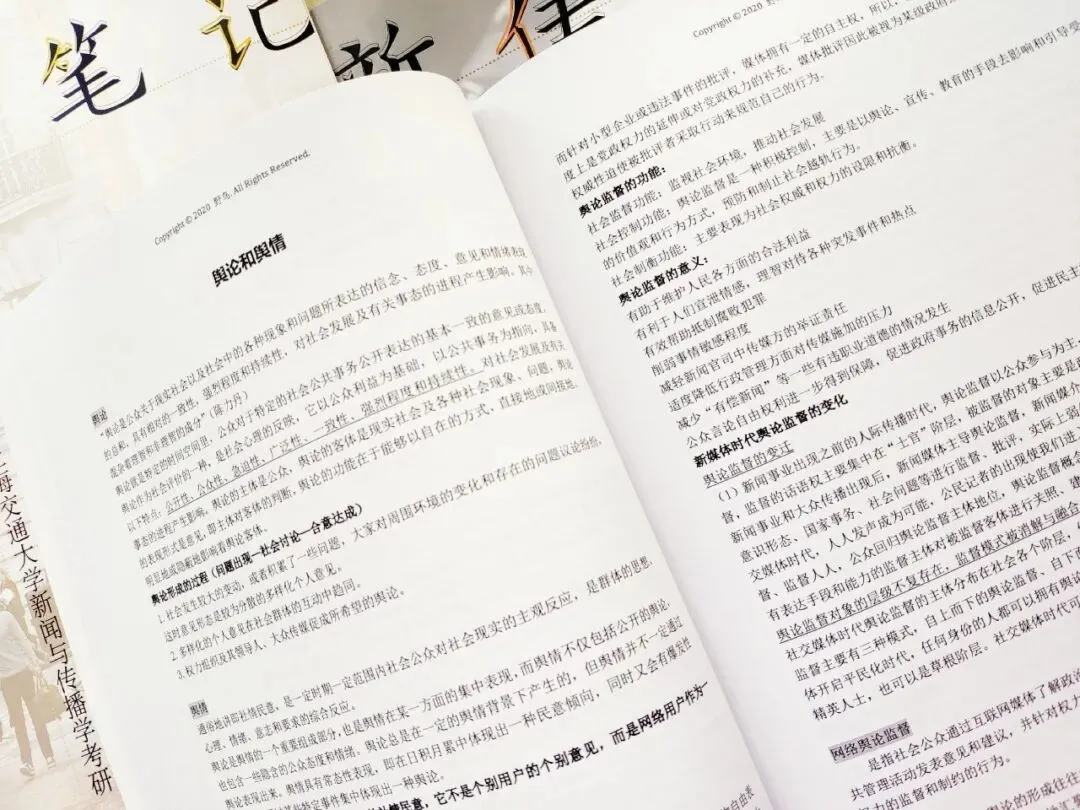 笔记
新传
上海交通大学新闻与传播学考研
Copyright © 2020 野鸟. All Rights Reserved.
舆论和舆情
舆论
“舆论是公众关于现实社会以及社会中的各种现象和问题所表达的信念、态度、意见和情绪表现
的总和，具有相对的一致性、强烈程度和持续性，对社会发展及有关事态的进程产生影响。其中
混杂着理智和非理智的成分”（陈力丹）
舆论就是特定的时间空间里，公众对于特定的社会公共事务公开表达的基本一致的意见或态度。
舆论作为社会评价的一种，是社会心理的反映，它以公众利益为基础，以公共事务为指向，具备
以下特点：公开性、公众性、急迫性、广泛性、一致性、强烈程度和持续性。对社会发展及有关
事态的进程产生影响。舆论的主体是公众，舆论的客体是现实社会及各种社会现象、问题，舆论
的表现形式是意见，即主体对客体的判断，舆论的功能在于能够以自在的方式，直接地或间接地、
明显地或隐蔽地影响着舆论客体。
舆论形成的过程（问题出现—社会讨论—合意达成）
1. 社会发生较大的变动，或者积累了一些问题，大家对周围环境的变化和存在的问题议论纷纷，
这时意见形态是较为分散的多样化个人意见。
2. 多样化的个人意见在社会群体的互动中趋同。
3. 权力组织及其领导人、大众传媒促成所希望的舆论。
舆情
通俗地讲即社情民意，是一定时期一定范围内社会公众对社会现实的主观反应，是群体的思想、
心理、情绪、意志和要求的综合反应。
舆论是舆情的一个重要组成部分，也是舆情在某一方面的集中表现，而舆情不仅包括公开的舆论，
也包含一些隐含的公众态度和情绪。舆论总是在一定的舆情背景下产生的，但舆情并不一定通过
舆论表现出来。舆情具有常态性表现，即在日积月累中体现出一种民意倾向，同时又会有爆发性
特定事件集中体现出一种舆论。
社情民意，它不是个别用户的个别意见，而是网络用户作为一
Copyright © 2020 野鸟.
而针对小型企业或违法事件的批评，媒体拥有一定的自主权，所以，
度上是党政权力的延伸或对党政权力的补充，媒体批评因此被视为某级政府
权威性迫使被批评者采取行动来规范自己的行为。
舆论监督的功能：
社会监督功能：监视社会环境，推动社会发展
社会控制功能：舆论监督是一种积极控制，主要是以舆论、宣传、教育的手段去影响和引导受
的价值观和行为方式，预防和制止社会越轨行为。
社会制衡功能：主要表现为社会权威和权力的设限和抗衡。
舆论监督的意义：
有助于维护人民各方面的合法利益
有利于人们宣泄情感，理智对待各种突发事件和热点
有效帮助抵制腐败犯罪
削弱事情敏感程度
减轻新闻官司中传媒方的举证责任
适度降低行政管理方面对传媒施加的压力
减少“有偿新闻”等一些有违职业道德的情况发生
公众言论自由权利进一步得到保障，促进政府事务的信息公开，促进民主
新媒体时代舆论监督的变化
舆论监督的变迁
（1）新闻事业出现之前的人际传播时代，舆论监督以公众参与为主，
督，监督的话语权主要集中在“士官”阶层，被监督的对象主要是
新闻事业和大众传播出现后，新闻媒体主导舆论监督，新闻媒介
意识形态、国家事务、社会问题等进行监督、批评，实际上
交媒体时代，人人发声成为可能，公民记者的出现使我们进
、监督人人，公众回归舆论监督主体地位，舆论监督概念
有表达手段和能力的监督主体对被监督客体进行关照、建
舆论监督对象的层级不复存在，监督模式被消解与融合
社交媒体时代舆论监督的主体分布在社会各个阶层，
监督主要有三种模式，自上而下的舆论监督、自下
体开启平民化时代，任何身份的人都可以拥有舆论
精英人士，也可以是草根阶层。社交媒体时代可
网络舆论监督
是指社会公众通过互联网媒体了解政治
共管理活动发表意见和建议，并针对权力
的监督和制约的行为。
的形成往往